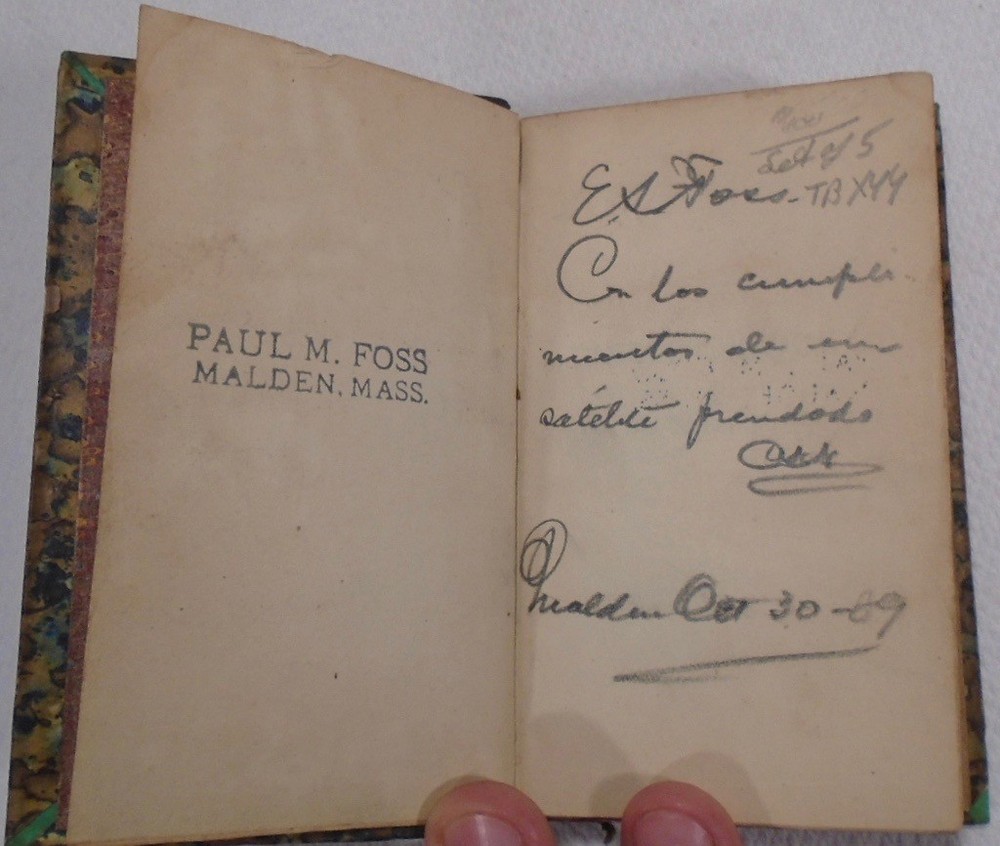 PAUL M. FOSS
MALDEN, MASS.
Set of 5
E S Foss. TBXYY
Con los cumpli-
mientos de un
satélite prendado
Malden Oct 30 - 69